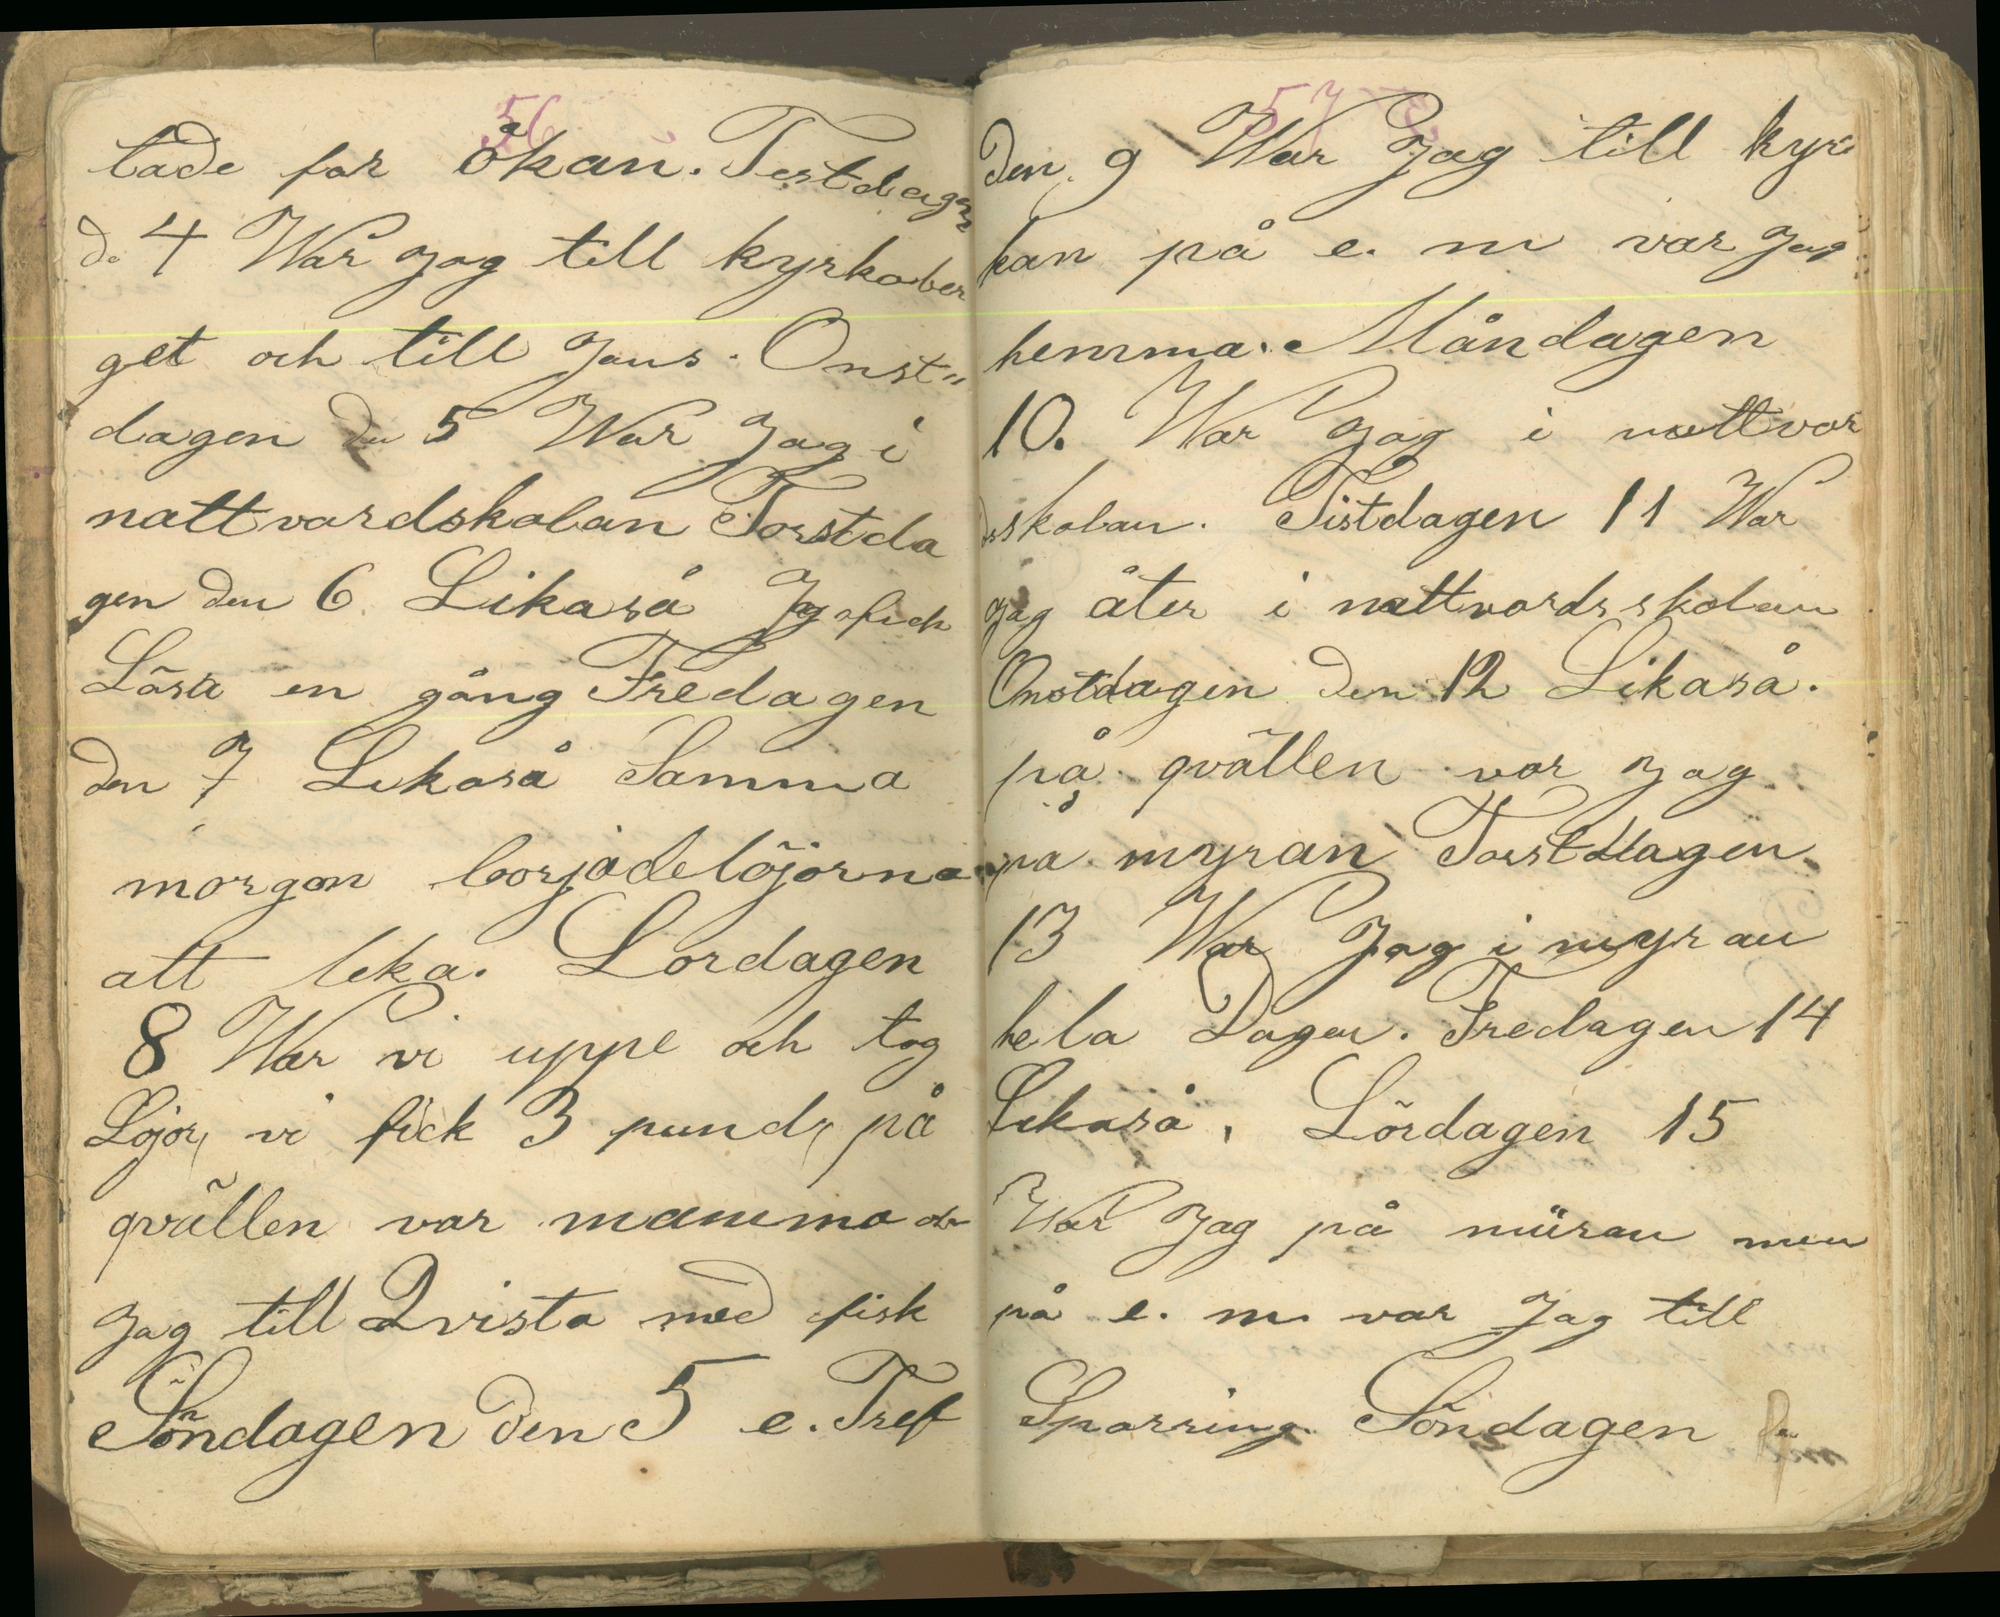 56
tade for åkan. Testdagen
d. 4 War Jag till kyrkober
get och till Jans. Onst„
dagen den 5 War Jag i
nattvardskolan Torstda
gen den 6. Likaså Jag fick
Läsa en gång Fredagen
den 7 Likaså Samma
morgon borjade löjorna
att leka. Lordagen
8 War vi uppe och tog
Lojor, vi fick 3 pund, på
qvällen var mamma och
Jag till Qvista med fisk
Söndagen den 5 e. Tref
57
den 9 War Jag till kyr
kan på e. m var Jag
hemma. Måndagen
10. War Jag i nattvar
dsskolan. Tistdagen 11 War
Jag åter i nattvardsskolan
Onstdagen den 12 Likaså.
på qvällen var Jag
på myran Torstdagen
13 War Jag i myran
hela Dagen. Fredagen 14
Likaså, Lördagen 15
War Jag på müran men
på e. m. var Jag till
Sparring. Söndagen den